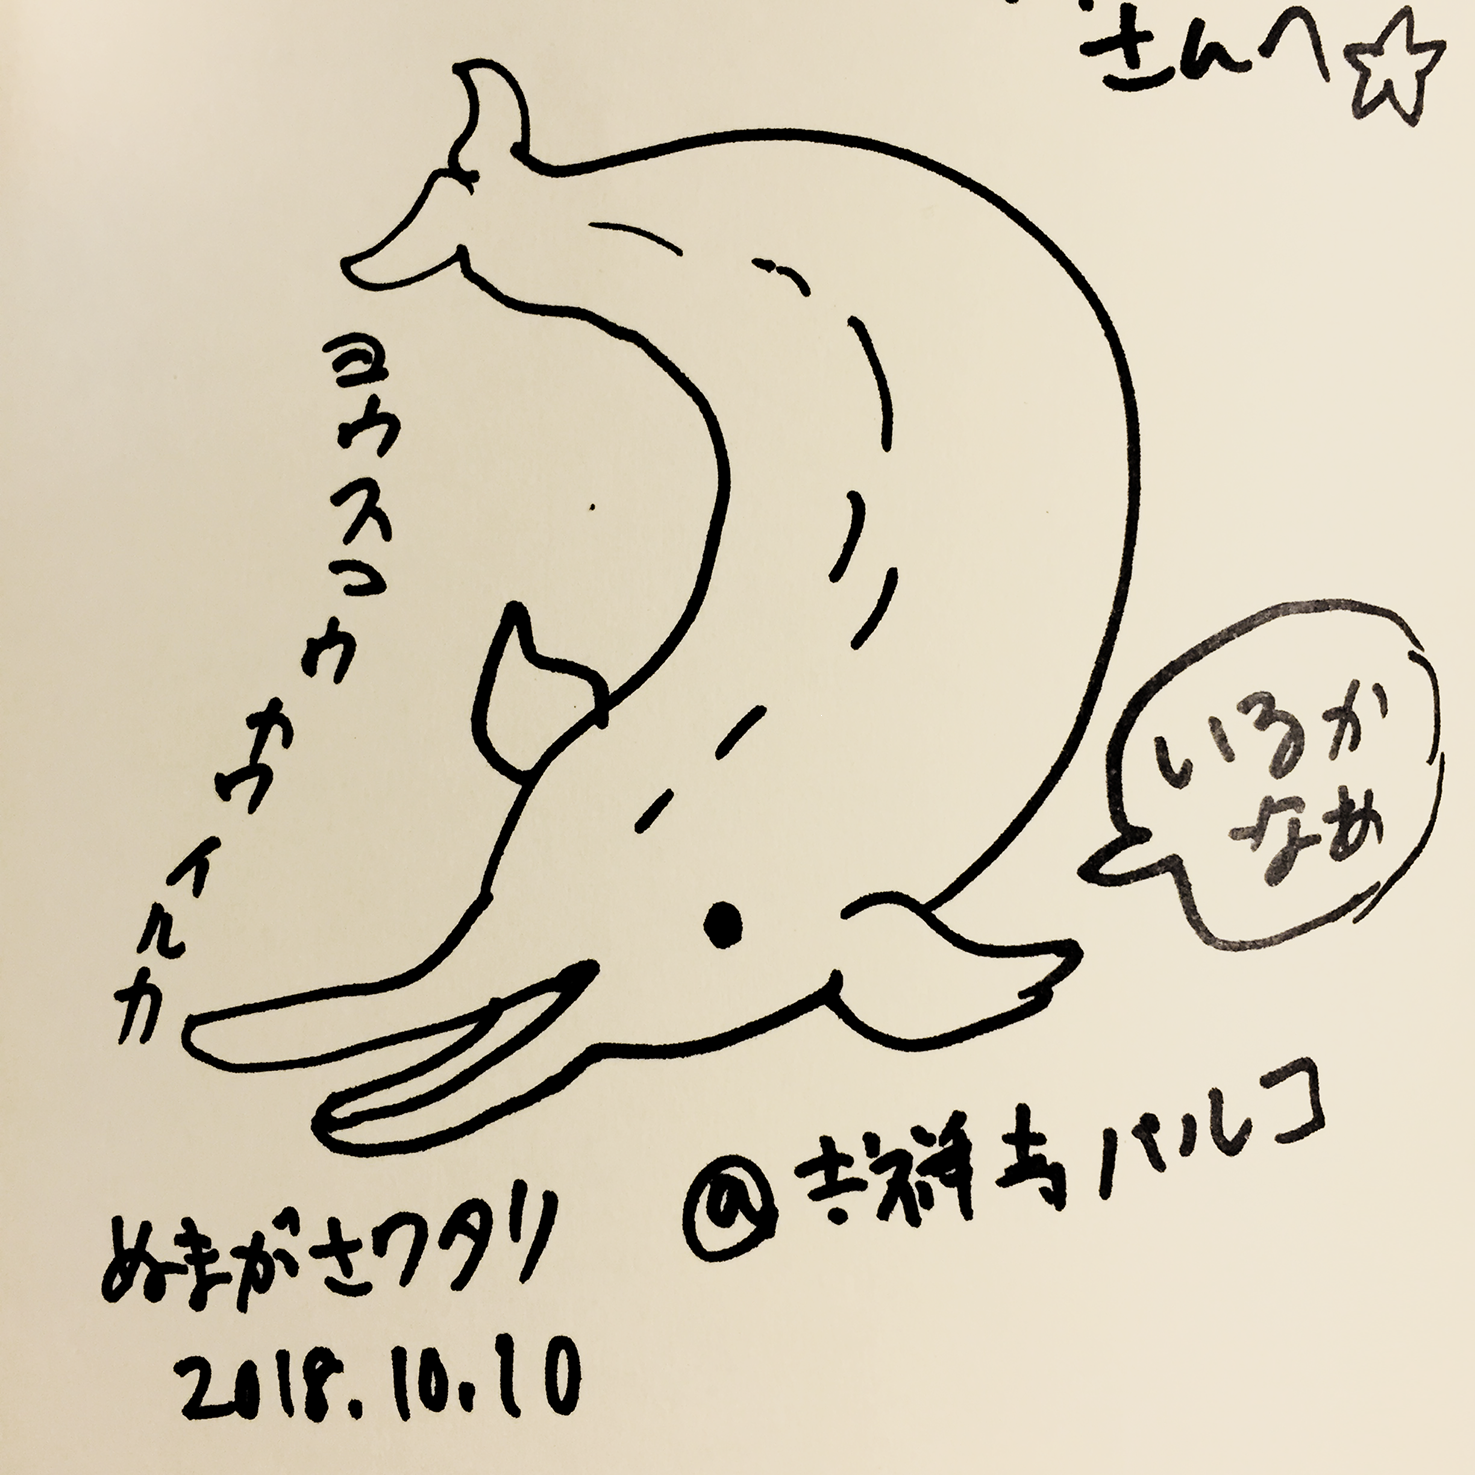 さんへ☆
ヨウスコウカワイルカ
いるか
なぁ
@吉祥寺パルコ
ぬまがさワタリ
2018.10.10